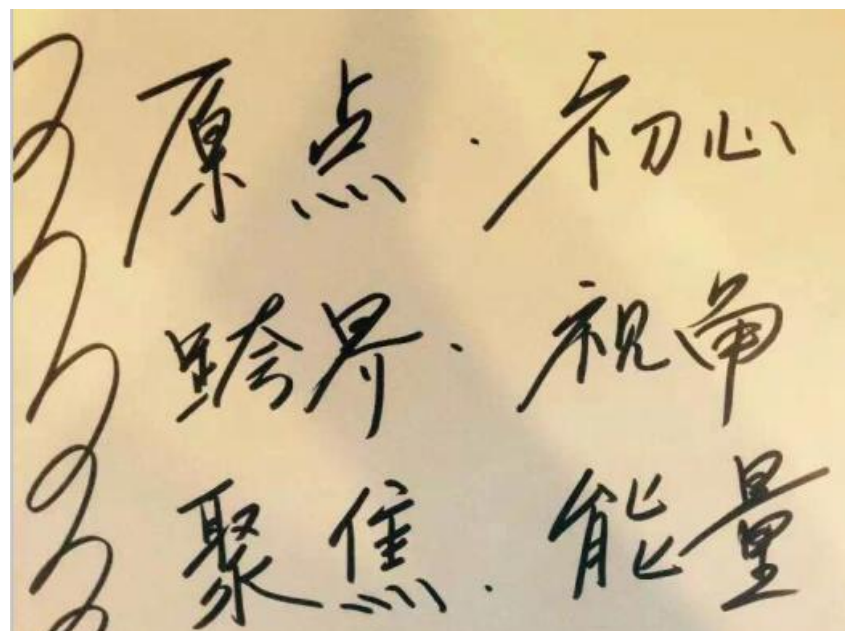 原点·初心
跨界·视角
聚焦·能量